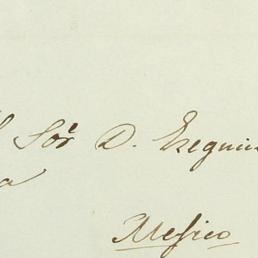 Sor D. Ezequie
a
Mexico